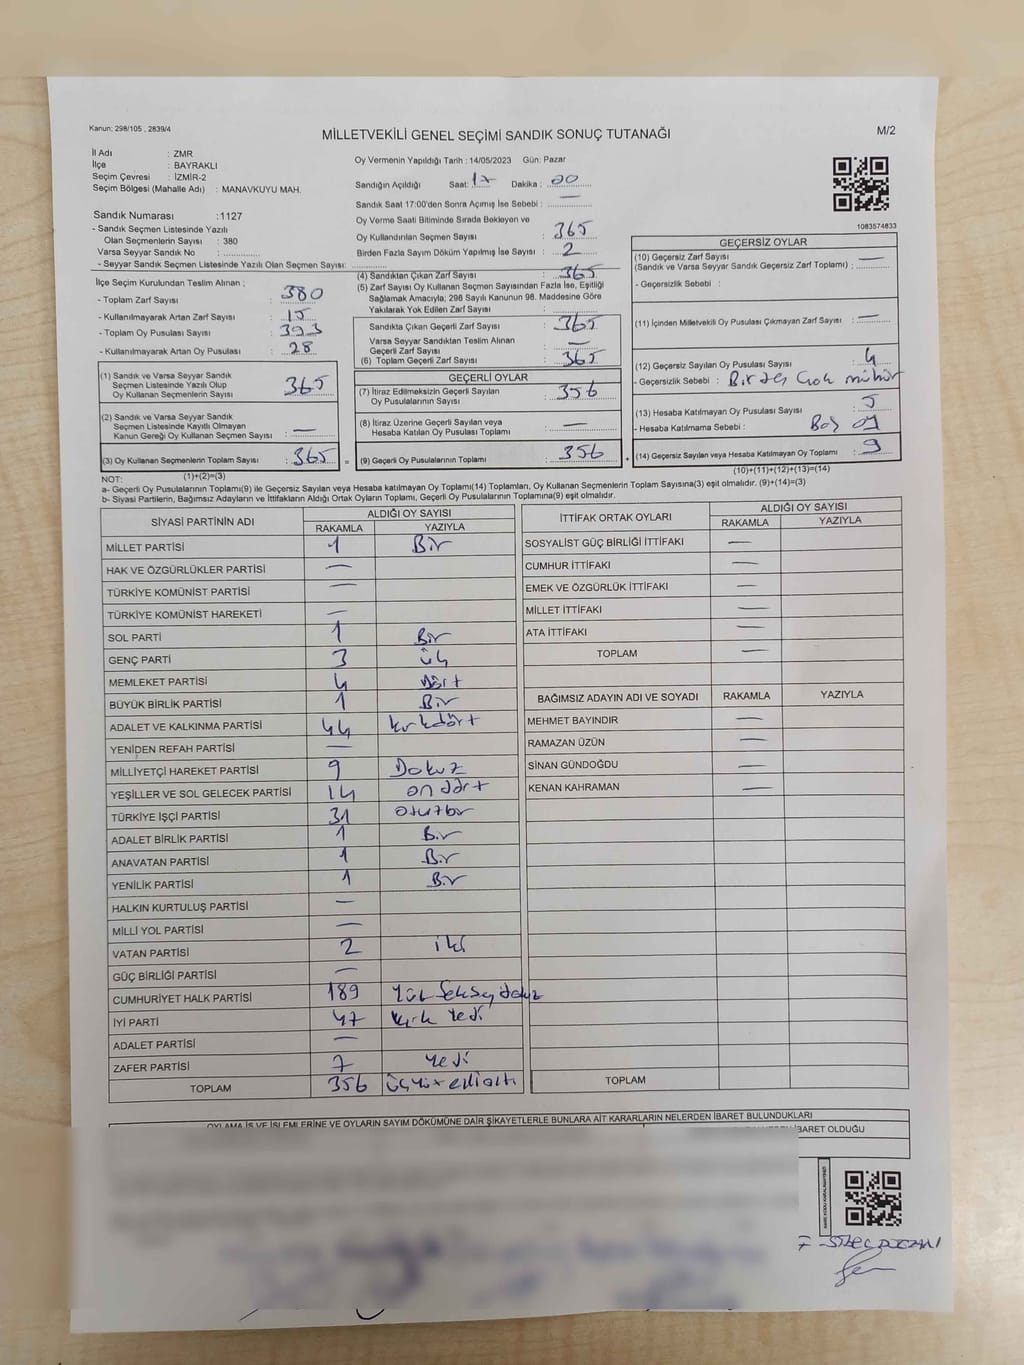 Kanun: 298/105 , 2839/4
MİLLETVEKİLİ GENEL SEÇİMİ SANDIK SONUÇ TUTANAĞI
M/2
İl Adı : ZMR
İlçe : BAYRAKLI
Seçim Çevresi : İZMİR-2
Seçim Bölgesi (Mahalle Adı) : MANAVKUYU MAH.
Sandık Numarası :1127
- Sandık Seçmen Listesinde Yazılı
Olan Seçmenlerin Sayısı : 380
Varsa Seyyar Sandık No : ..............
- Seyyar Sandık Seçmen Listesinde Yazılı Olan Seçmen Sayısı: ..............
Oy Vermenin Yapıldığı Tarih : 14/05/2023 Gün: Pazar
Sandığın Açıldığı Saat: 17 Dakika : 00
Sandık Saat 17:00'den Sonra Açımış İse Sebebi : —
Oy Verme Saati Bitiminde Sırada Bekleyen ve
Oy Kullandırılan Seçmen Sayısı : 365
Birden Fazla Sayım Döküm Yapılmış İse Sayısı : 2
1083574833
İlçe Seçim Kurulundan Teslim Alınan ;
- Toplam Zarf Sayısı : 380
- Kullanılmayarak Artan Zarf Sayısı : 15
- Toplam Oy Pusulası Sayısı : 393
- Kullanılmayarak Artan Oy Pusulası : 28
(1) Sandık ve Varsa Seyyar Sandık
Seçmen Listesinde Yazılı Olup
Oy Kullanan Seçmenlerin Sayısı : 365
(2) Sandık ve Varsa Seyyar Sandık
Seçmen Listesinde Kayıtlı Olmayan
Kanun Gereği Oy Kullanan Seçmen Sayısı : —
(3) Oy Kullanan Seçmenlerin Toplam Sayısı : 365
(1)+(2)=(3)
(4) Sandıktan Çıkan Zarf Sayısı : 365
(5) Zarf Sayısı Oy Kullanan Seçmen Sayısından Fazla İse, Eşitliği
Sağlamak Amacıyla; 298 Sayılı Kanunun 98. Maddesine Göre
Yakılarak Yok Edilen Zarf Sayısı :
Sandıkta Çıkan Geçerli Zarf Sayısı : 365
Varsa Seyyar Sandıktan Teslim Alınan
Geçerli Zarf Sayısı : —
(6) Toplam Geçerli Zarf Sayısı : 365
GEÇERLİ OYLAR
(7) İtiraz Edilmeksizin Geçerli Sayılan
Oy Pusulalarının Sayısı : 356
(8) İtiraz Üzerine Geçerli Sayılan veya
Hesaba Katılan Oy Pusulası Toplamı : —
= (9) Geçerli Oy Pusulalarının Toplamı : 356
GEÇERSİZ OYLAR
(10) Geçersiz Zarf Sayısı
(Sandık ve Varsa Seyyar Sandık Geçersiz Zarf Toplamı) : —
- Geçersizlik Sebebi :
(11) İçinden Milletvekili Oy Pusulası Çıkmayan Zarf Sayısı : —
(12) Geçersiz Sayılan Oy Pusulası Sayısı : 4
- Geçersizlik Sebebi : Birden çok mühür
(13) Hesaba Katılmayan Oy Pusulası Sayısı : 5
- Hesaba Katılmama Sebebi : Boş oy
+ (14) Geçersiz Sayılan veya Hesaba Katılmayan Oy Toplamı : 9
(10)+(11)+(12)+(13)=(14)
NOT:
a- Geçerli Oy Pusulalarının Toplamı(9) ile Geçersiz Sayılan veya Hesaba katılmayan Oy Toplamı(14) Toplamları, Oy Kullanan Seçmenlerin Toplam Sayısına(3) eşit olmalıdır. (9)+(14)=(3)
b- Siyasi Partilerin, Bağımsız Adayların ve İttifakların Aldığı Ortak Oyların Toplamı, Geçerli Oy Pusulalarının Toplamına(9) eşit olmalıdır.
SİYASİ PARTİNİN ADI ALDIĞI OY SAYISI
RAKAMLA YAZIYLA
MİLLET PARTİSİ 1 Bir
HAK VE ÖZGÜRLÜKLER PARTİSİ —
TÜRKİYE KOMÜNİST PARTİSİ —
TÜRKİYE KOMÜNİST HAREKETİ —
SOL PARTİ 1 Bir
GENÇ PARTİ 3 üç
MEMLEKET PARTİSİ 4 Dört
BÜYÜK BİRLİK PARTİSİ 1 Bir
ADALET VE KALKINMA PARTİSİ 44 kırkdört
YENİDEN REFAH PARTİSİ —
MİLLİYETÇİ HAREKET PARTİSİ 9 Dokuz
YEŞİLLER VE SOL GELECEK PARTİSİ 14 ondört
TÜRKİYE İŞÇİ PARTİSİ 31 otuzbir
ADALET BİRLİK PARTİSİ 1 Bir
ANAVATAN PARTİSİ 1 Bir
YENİLİK PARTİSİ 1 Bir
HALKIN KURTULUŞ PARTİSİ —
MİLLİ YOL PARTİSİ —
VATAN PARTİSİ 2 iki
GÜÇ BİRLİĞİ PARTİSİ —
CUMHURİYET HALK PARTİSİ 189
İYİ PARTİ 47 kırk Yedi
ADALET PARTİSİ —
ZAFER PARTİSİ 7 Yedi
TOPLAM 356 üçyüzellialtı
İTTİFAK ORTAK OYLARI ALDIĞI OY SAYISI
RAKAMLA YAZIYLA
SOSYALİST GÜÇ BİRLİĞİ İTTİFAKI —
CUMHUR İTTİFAKI —
EMEK VE ÖZGÜRLÜK İTTİFAKI —
MİLLET İTTİFAKI —
ATA İTTİFAKI —
TOPLAM —
BAĞIMSIZ ADAYIN ADI VE SOYADI RAKAMLA YAZIYLA
MEHMET BAYINDIR —
RAMAZAN ÜZÜN —
SİNAN GÜNDOĞDU —
KENAN KAHRAMAN —
TOPLAM
OYLAMA İŞ VE İŞLEMLERİNE VE OYLARIN SAYIM DÖKÜMÜNE DAİR ŞİKAYETLERLE BUNLARA AİT KARARLARIN NELERDEN İBARET BULUNDUKLARI
İBARET OLDUĞU